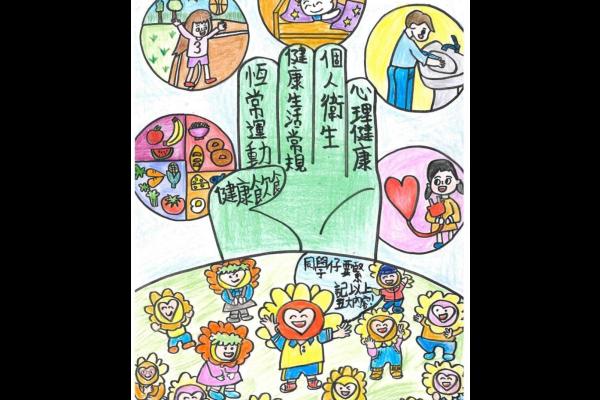 恆常運動
健康生活常規
個人衛生
心理健康
健康飲食
同學仔要緊
記以上
五大內容!
3